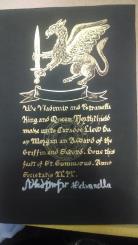 We Vladimir and Petranella
King and Queen Northshield
make unto Caradoc Llew Du
ap Morgan an Award of the
Griffin and Sword. Done this
fast of St. Gummarus. Anno
Societatis
Vladimir Petranella